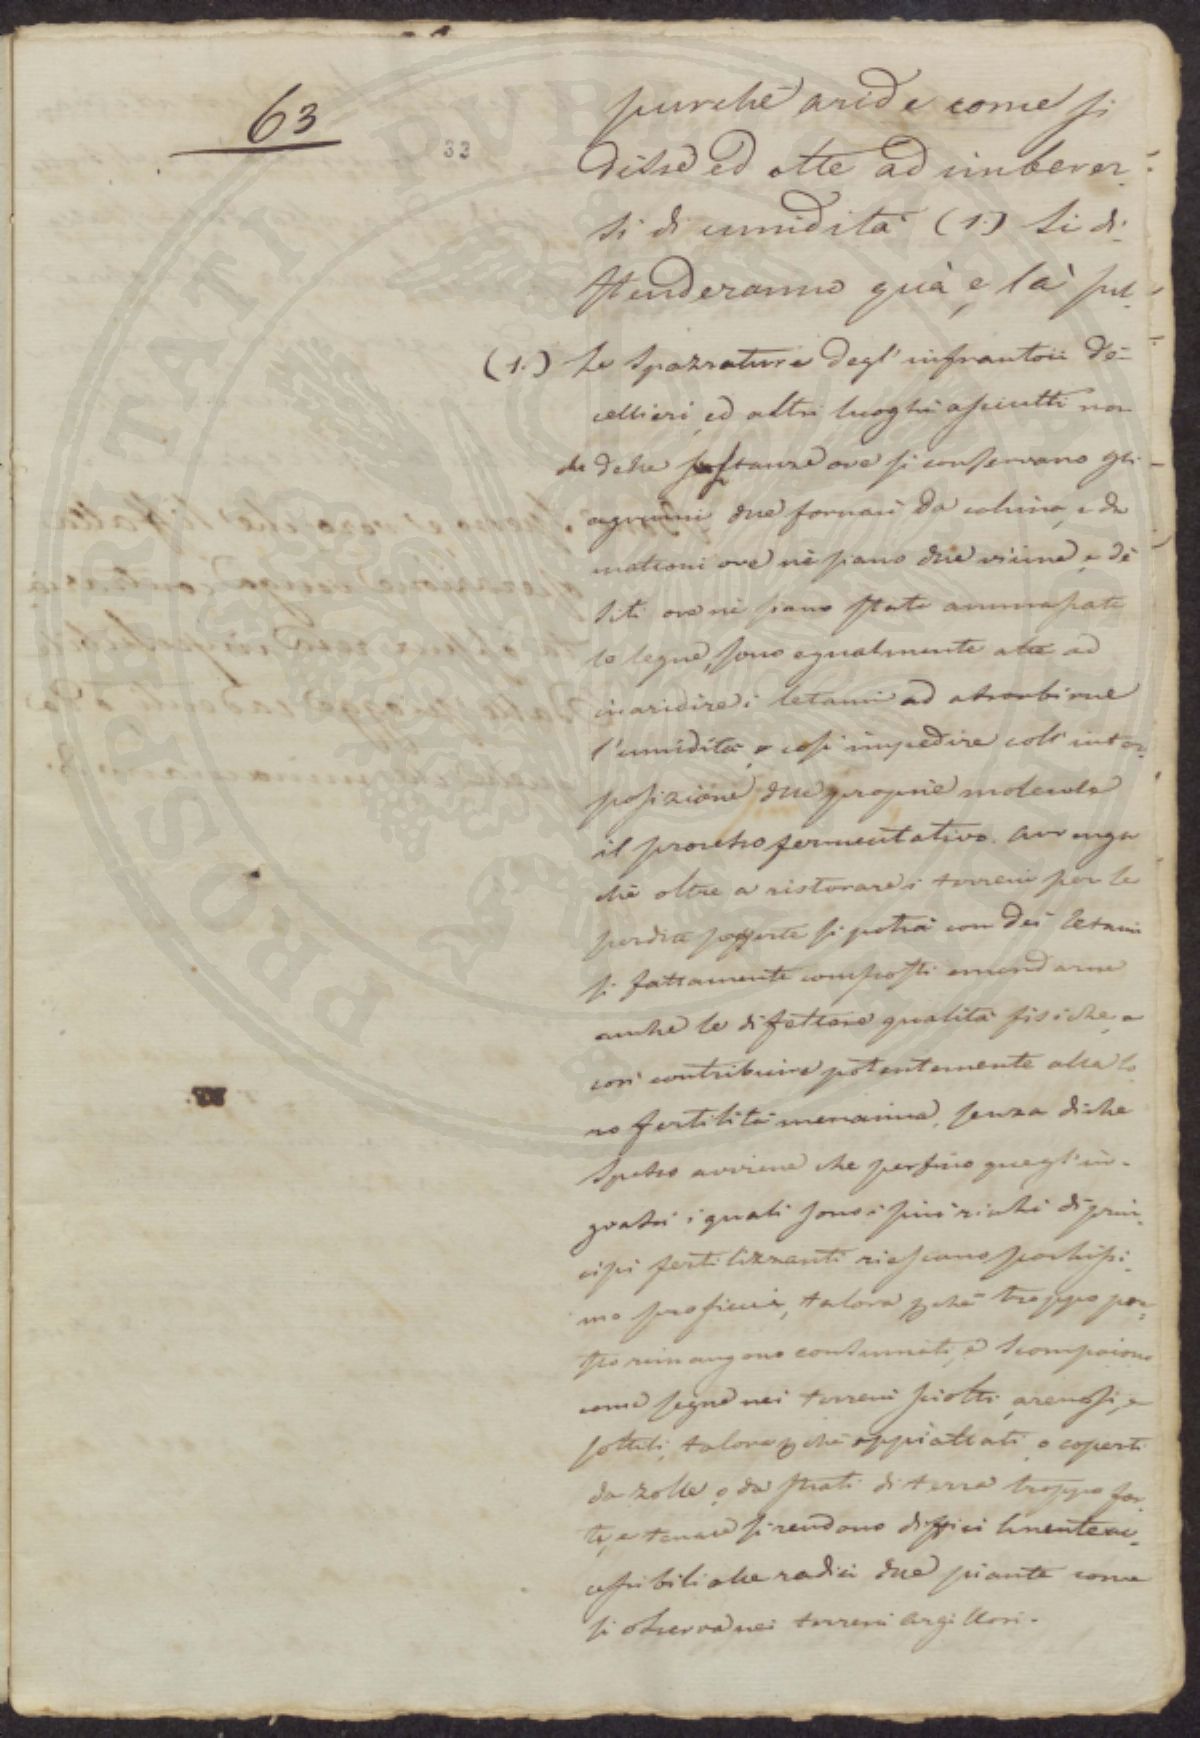 63
33
purchè aride come si
disse ed atte ad imbever-
si di umidità (1.) Si di-
stenderanno quà e là sul-
(1.) Le spazzature degl'infrantoii de
cellieri, ed altri luoghi asciutti non
che delle stanze ove si conservano gli
agrumi, delle fornaci da calcina, e da
mattoni ove nè siano delle vicine, e dè
siti ove nè siano state ammassate
le legne, sono egualmente atte ad
inaridire i letami ad assorbirne
l'umidità, e così impedire coll'inter-
posizione delle proprie molecole
il processo fermentativo. Avvenga
chè oltre a ristorare i terreni per le
perdite sofferte si potrà con dei letami
sì fattamente composti emendarne
anche le difettose qualità fisiche, e
così contribuire potentemente alla lo
ro fertilità menoma, senza di che
spesso avviene che perfino quegl'in-
grassi i quali sono i più ricchi di prin-
cipi fertilizzanti riescano pochissi-
mo proficui, talora perchè troppo pre-
sto rimangono consumati, e scompaiono
come segue nei terreni sciolti, arenosi, e
sottili, talora perchè appiattati, o coperti
da zolle, o da strati di terra troppo for-
te, e tenace si rendono difficilmente ac-
cessibili alle radici delle piante come
si osserva nei terreni argillosi.
PROSPERITATI PVBLICAE